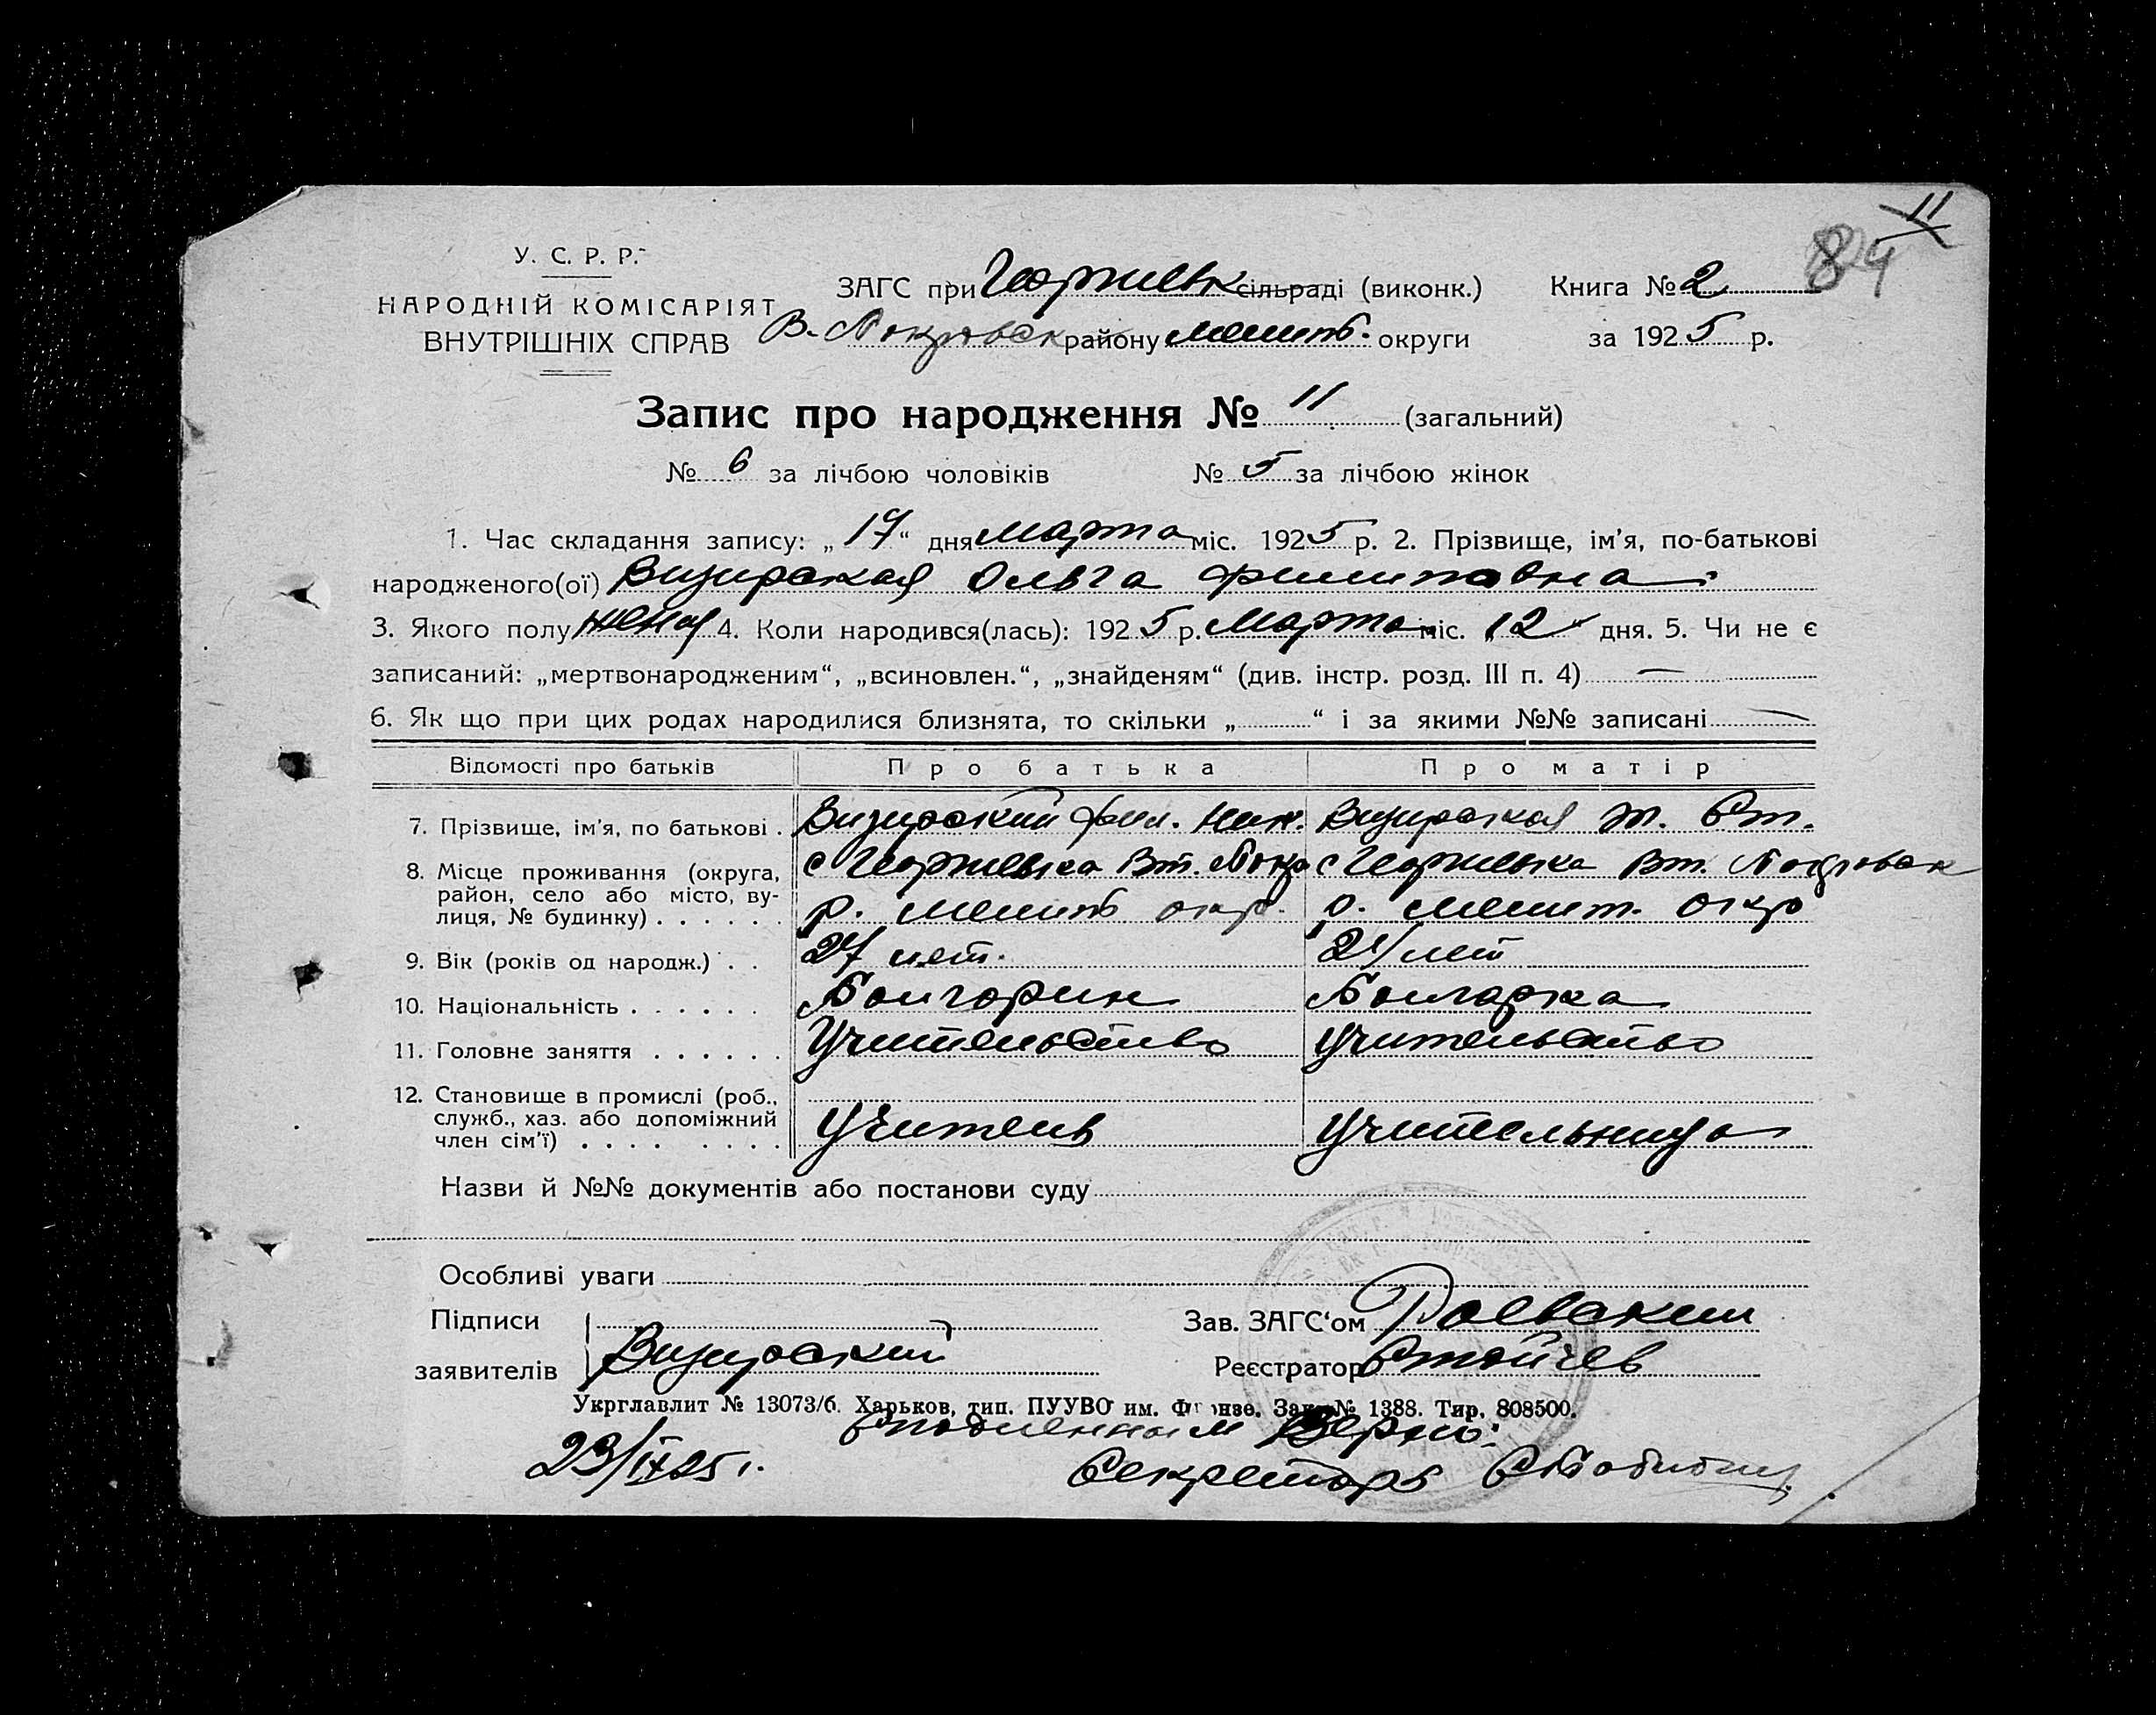 11
84
У. С. Р. Р.
НАРОДНІЙ КОМІСАРІЯТ
ВНУТРІШНІХ СПРАВ
ЗАГС при сільраді (виконк.)
Книга № 2
В. Покровск району Мелит. округи
за 1925 р.
Запис про народження № 11 (загальний)
№ 6 за лічбою чоловіків № 5 за лічбою жінок
1. Час складання запису: „17“ дня марта міс. 1925 р. 2. Прізвище, ім’я, по-батькові
народженого(ої) Визирская Ольга Филиповна
3. Якого полу 4. Коли народився(лась): 1925 р. Марта міс. „12“ дня. 5. Чи не є
записаний: „мертвонародженим“, „всиновлен.“, „знайденям“ (див. інстр. розд. III п. 4) —
6. Як що при цих родах народилися близнята, то скільки „ “ і за якими №№ записані —
Відомості про батьків Про батька Про матір
7. Прізвище, ім’я, по батькові . Визирский Фил. Ник. Визирская М. Ст.
8. Місце проживання (округа,
район, село або місто, ву-
лиця, № будинку) . . . . . .
с Георгиевка Вт. Покр с Георгиевка Вт. Покровск
р. Мелит окр. р. Мелит. окр
9. Вік (років од народж.) . . 27 лет. лет
10. Національність . . . . . . Болгорин Болгарка
11. Головне заняття . . . . . . Учительство Учительство
12. Становище в промислі (роб.,
служб., хаз. або допоміжний
член сім’ї) . . . . . . . .
Учитель Учительница
Назви й №№ документів або постанови суду
Особливі уваги
Підписи
заявителів Визирский
Зав. ЗАГС‘ом
Реєстратор Стойчев
Укрглавлит № 13073/б. Харьков, тип. ПУУВО им. Фрунзе. Зак. № 1388. Тир. 808500.
С подленным Верно:
23/IX 25 г.
Секретарь